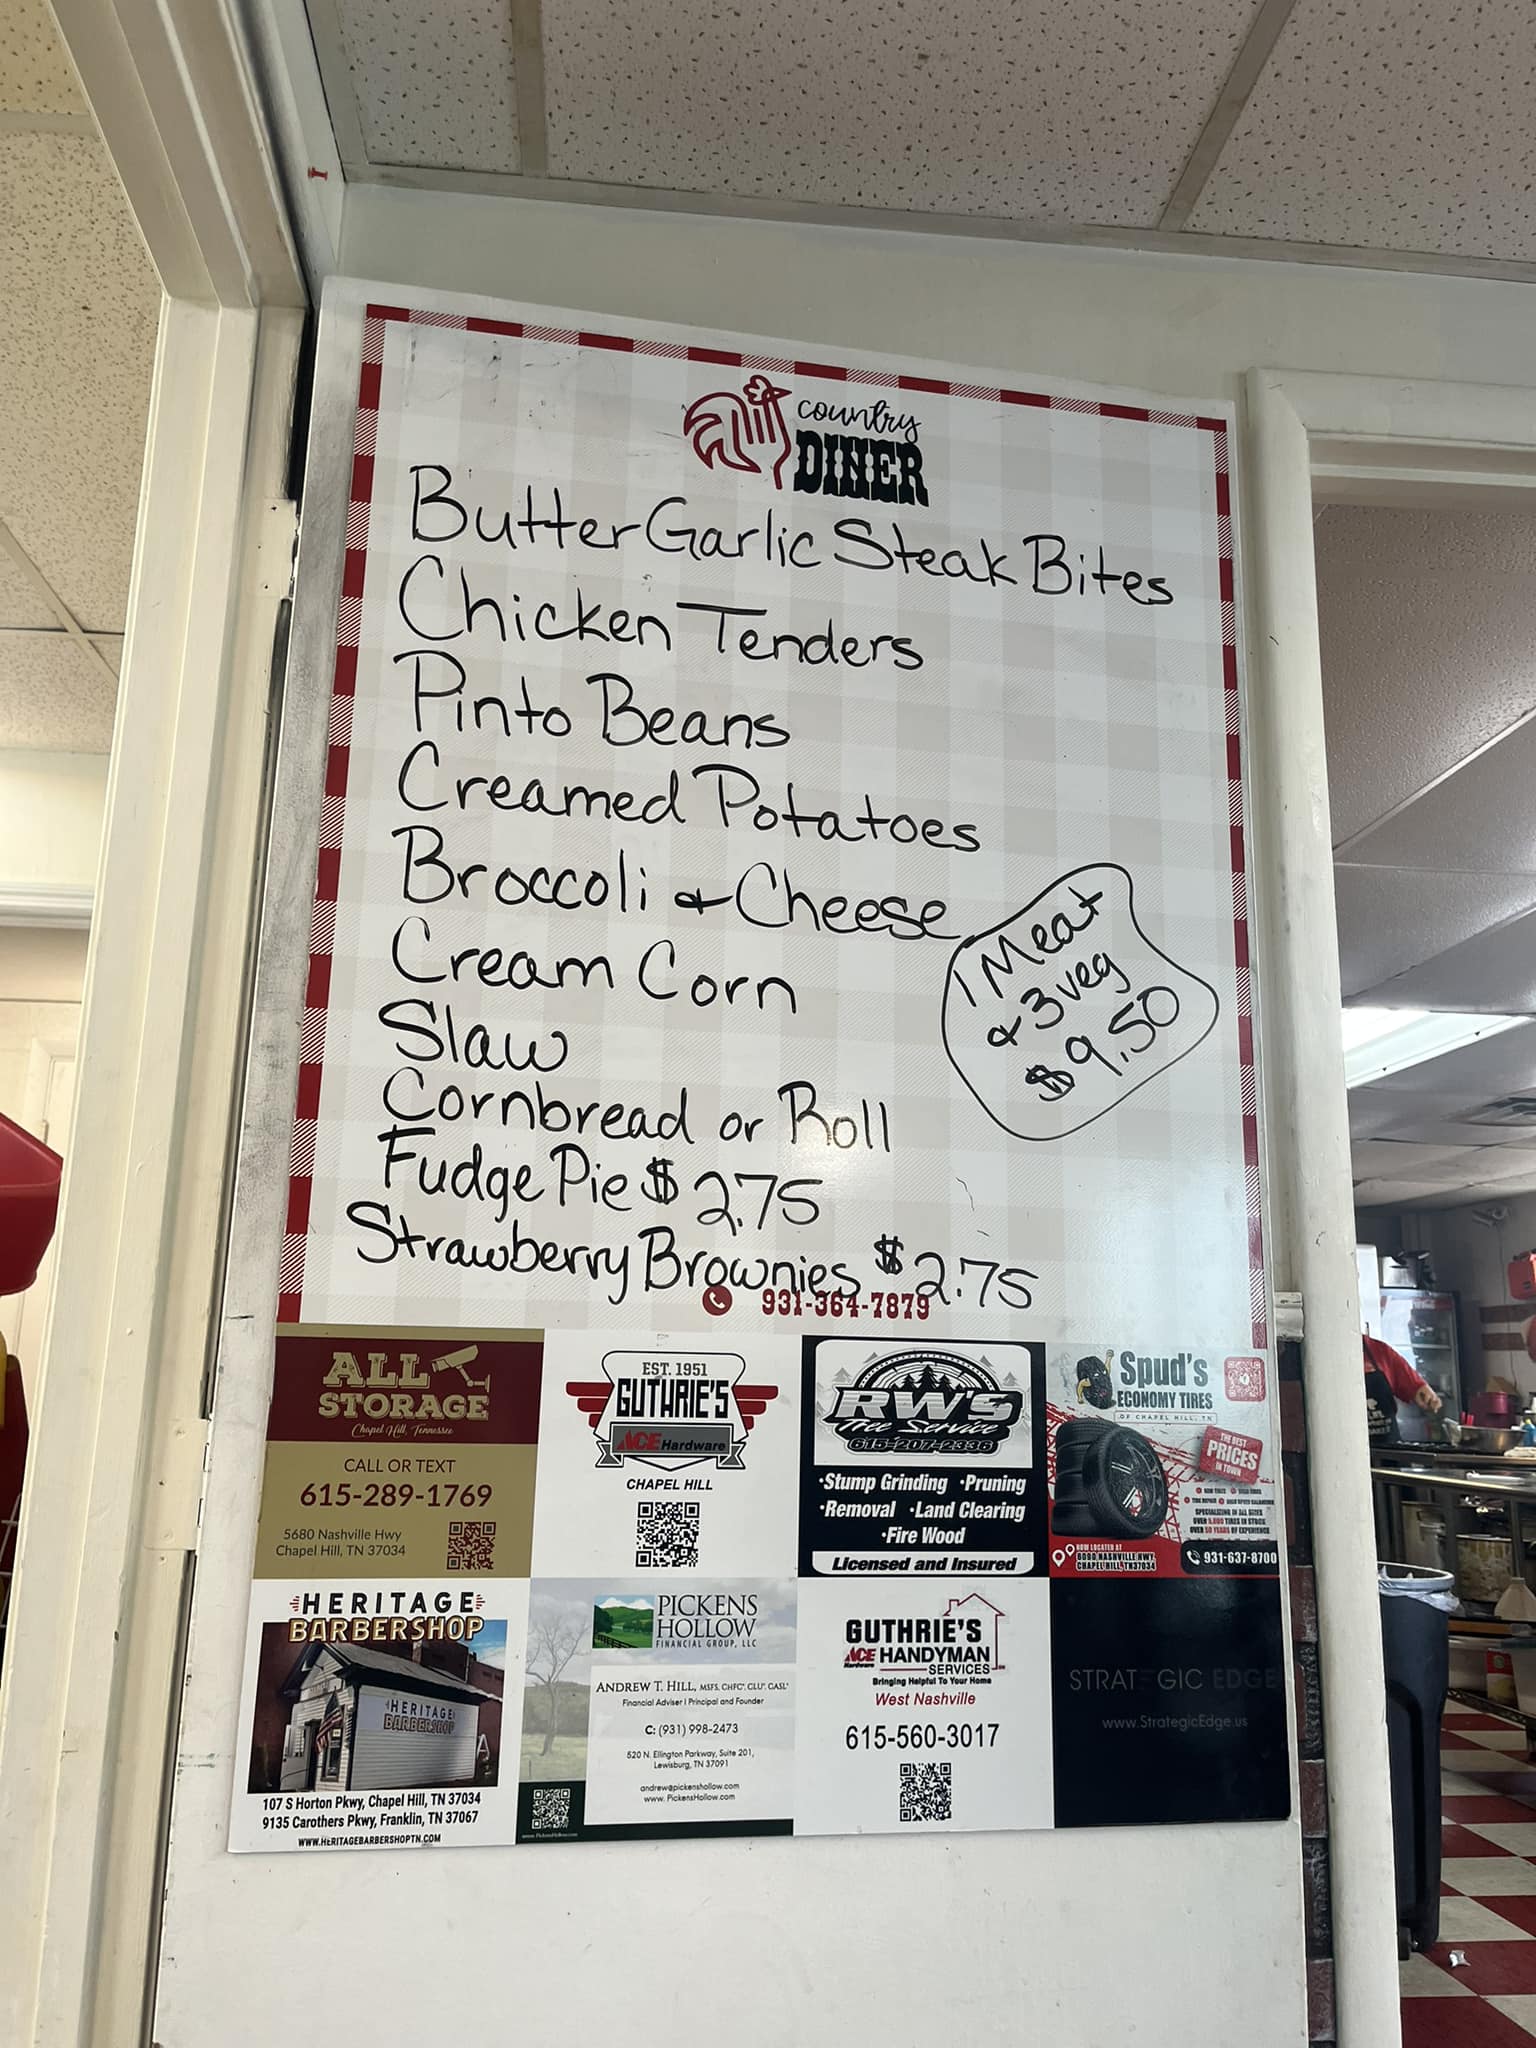 country
DINER
Butter Garlic Steak Bites
Chicken Tenders
Pinto Beans
Creamed Potatoes
Broccoli & Cheese
Cream Corn
Slaw
Cornbread or Roll
Fudge Pie $2.75
Strawberry Brownies $2.75
1 Meat
& 3 veg
$9.50
931-364-7879
ALL
STORAGE
Chapel Hill, Tennessee
CALL OR TEXT
615-289-1769
5680 Nashville Hwy
Chapel Hill, TN 37034
EST. 1951
GUTHRIE'S
ACE Hardware
CHAPEL HILL
RW'S
Tree Service
615-207-2336
•Stump Grinding •Pruning
•Removal •Land Clearing
•Fire Wood
Licensed and Insured
Spud's
ECONOMY TIRES
OF CHAPEL HILL, TN
THE BEST
PRICES
IN TOWN
SPECIALIZING IN ALL SIZES
OVER 5,000 TIRES IN STOCK
OVER 50 YEARS OF EXPERIENCE
NOW LOCATED AT
NASHVILLE HWY.
CHAPEL HILL, TN 37034
931-637-8700
HERITAGE
BARBERSHOP
HERITAGE
BARBERSHOP
107 S Horton Pkwy, Chapel Hill, TN 37034
9135 Carothers Pkwy, Franklin, TN 37067
WWW.HERITAGEBARBERSHOPTN.COM
PICKENS
HOLLOW
FINANCIAL GROUP, LLC
ANDREW T. HILL, MSFS, CHFC®, CLU®, CASL®
Financial Adviser | Principal and Founder
C: (931) 998-2473
520 N. Ellington Parkway, Suite 201,
Lewisburg, TN 37091
andrew@pickenshollow.com
www.PickensHollow.com
www.PickensHollow.com
GUTHRIE'S
ACE Hardware HANDYMAN
SERVICES
Bringing Helpful To Your Home
West Nashville
615-560-3017
STRATEGIC EDGE
www.StrategicEdge.us